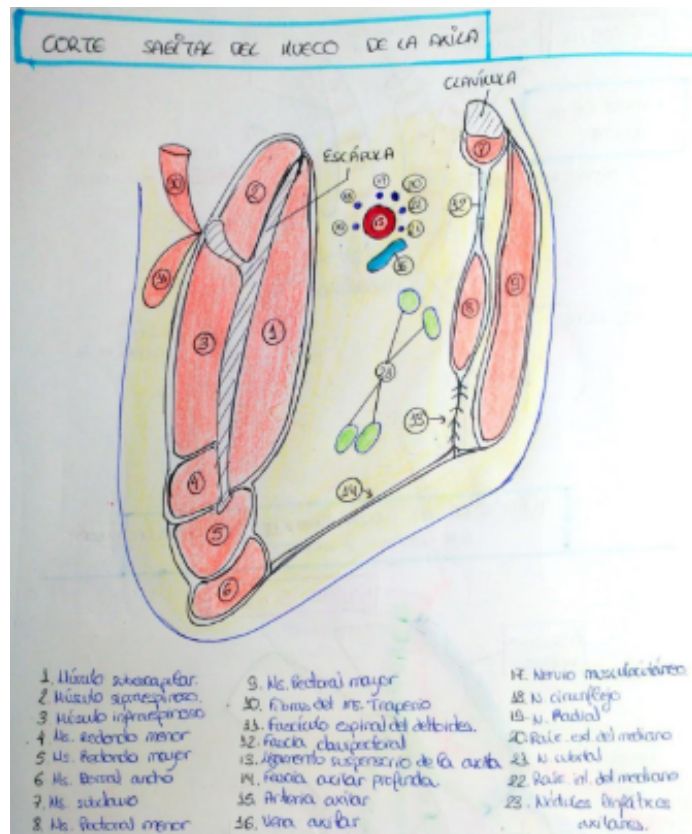 CORTE SAGITAL DEL HUECO DE LA AXILA
CLAVÍCULA
ESCÁPULA
1. Músculo subescapular.
2 Músculo supraespinoso.
3 Músculo infraespinoso
4 Ms. Redondo menor
5 Ms. Redondo mayor
6 Ms. Dorsal ancho
7. Ms. subclavio
8 Ms. Pectoral menor
9. Ms. Pectoral mayor
10. Fibras del Ms. Trapecio
11. Fascículo espinal del deltoides.
12. Fascia clavipectoral
13. Ligamento suspensorio de la axila
14. Fascia axilar profunda.
15. Arteria axilar
16. Vena axilar
17. Nervio musculocutáneo
18. N circunflejo
19. N. Radial
20. Raíz. ext. del mediano
21 N cubital
22 Raíz. int. del mediano
23. Nódulos linfáticos
axilares.